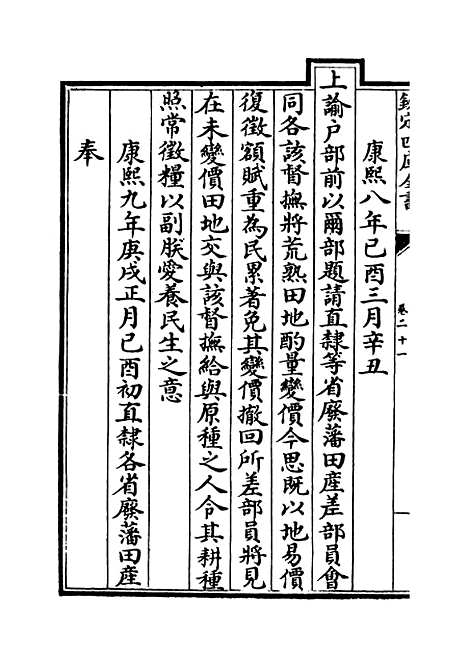 欽定四庫全書
卷二十一
康熙八年己酉三月辛丑
上諭户部前以爾部題請直隷等省廢藩田産差部員會
同各該督撫將荒熟田地酌量變價今思既以地易價
復徵額賦重為民累著免其變價撤回所差部員將見
在未變價田地交與該督撫給與原種之人令其耕種
照常徵糧以副朕愛養民生之意
康熙九年庚戌正月己酉初直隷各省廢藩田産
奉